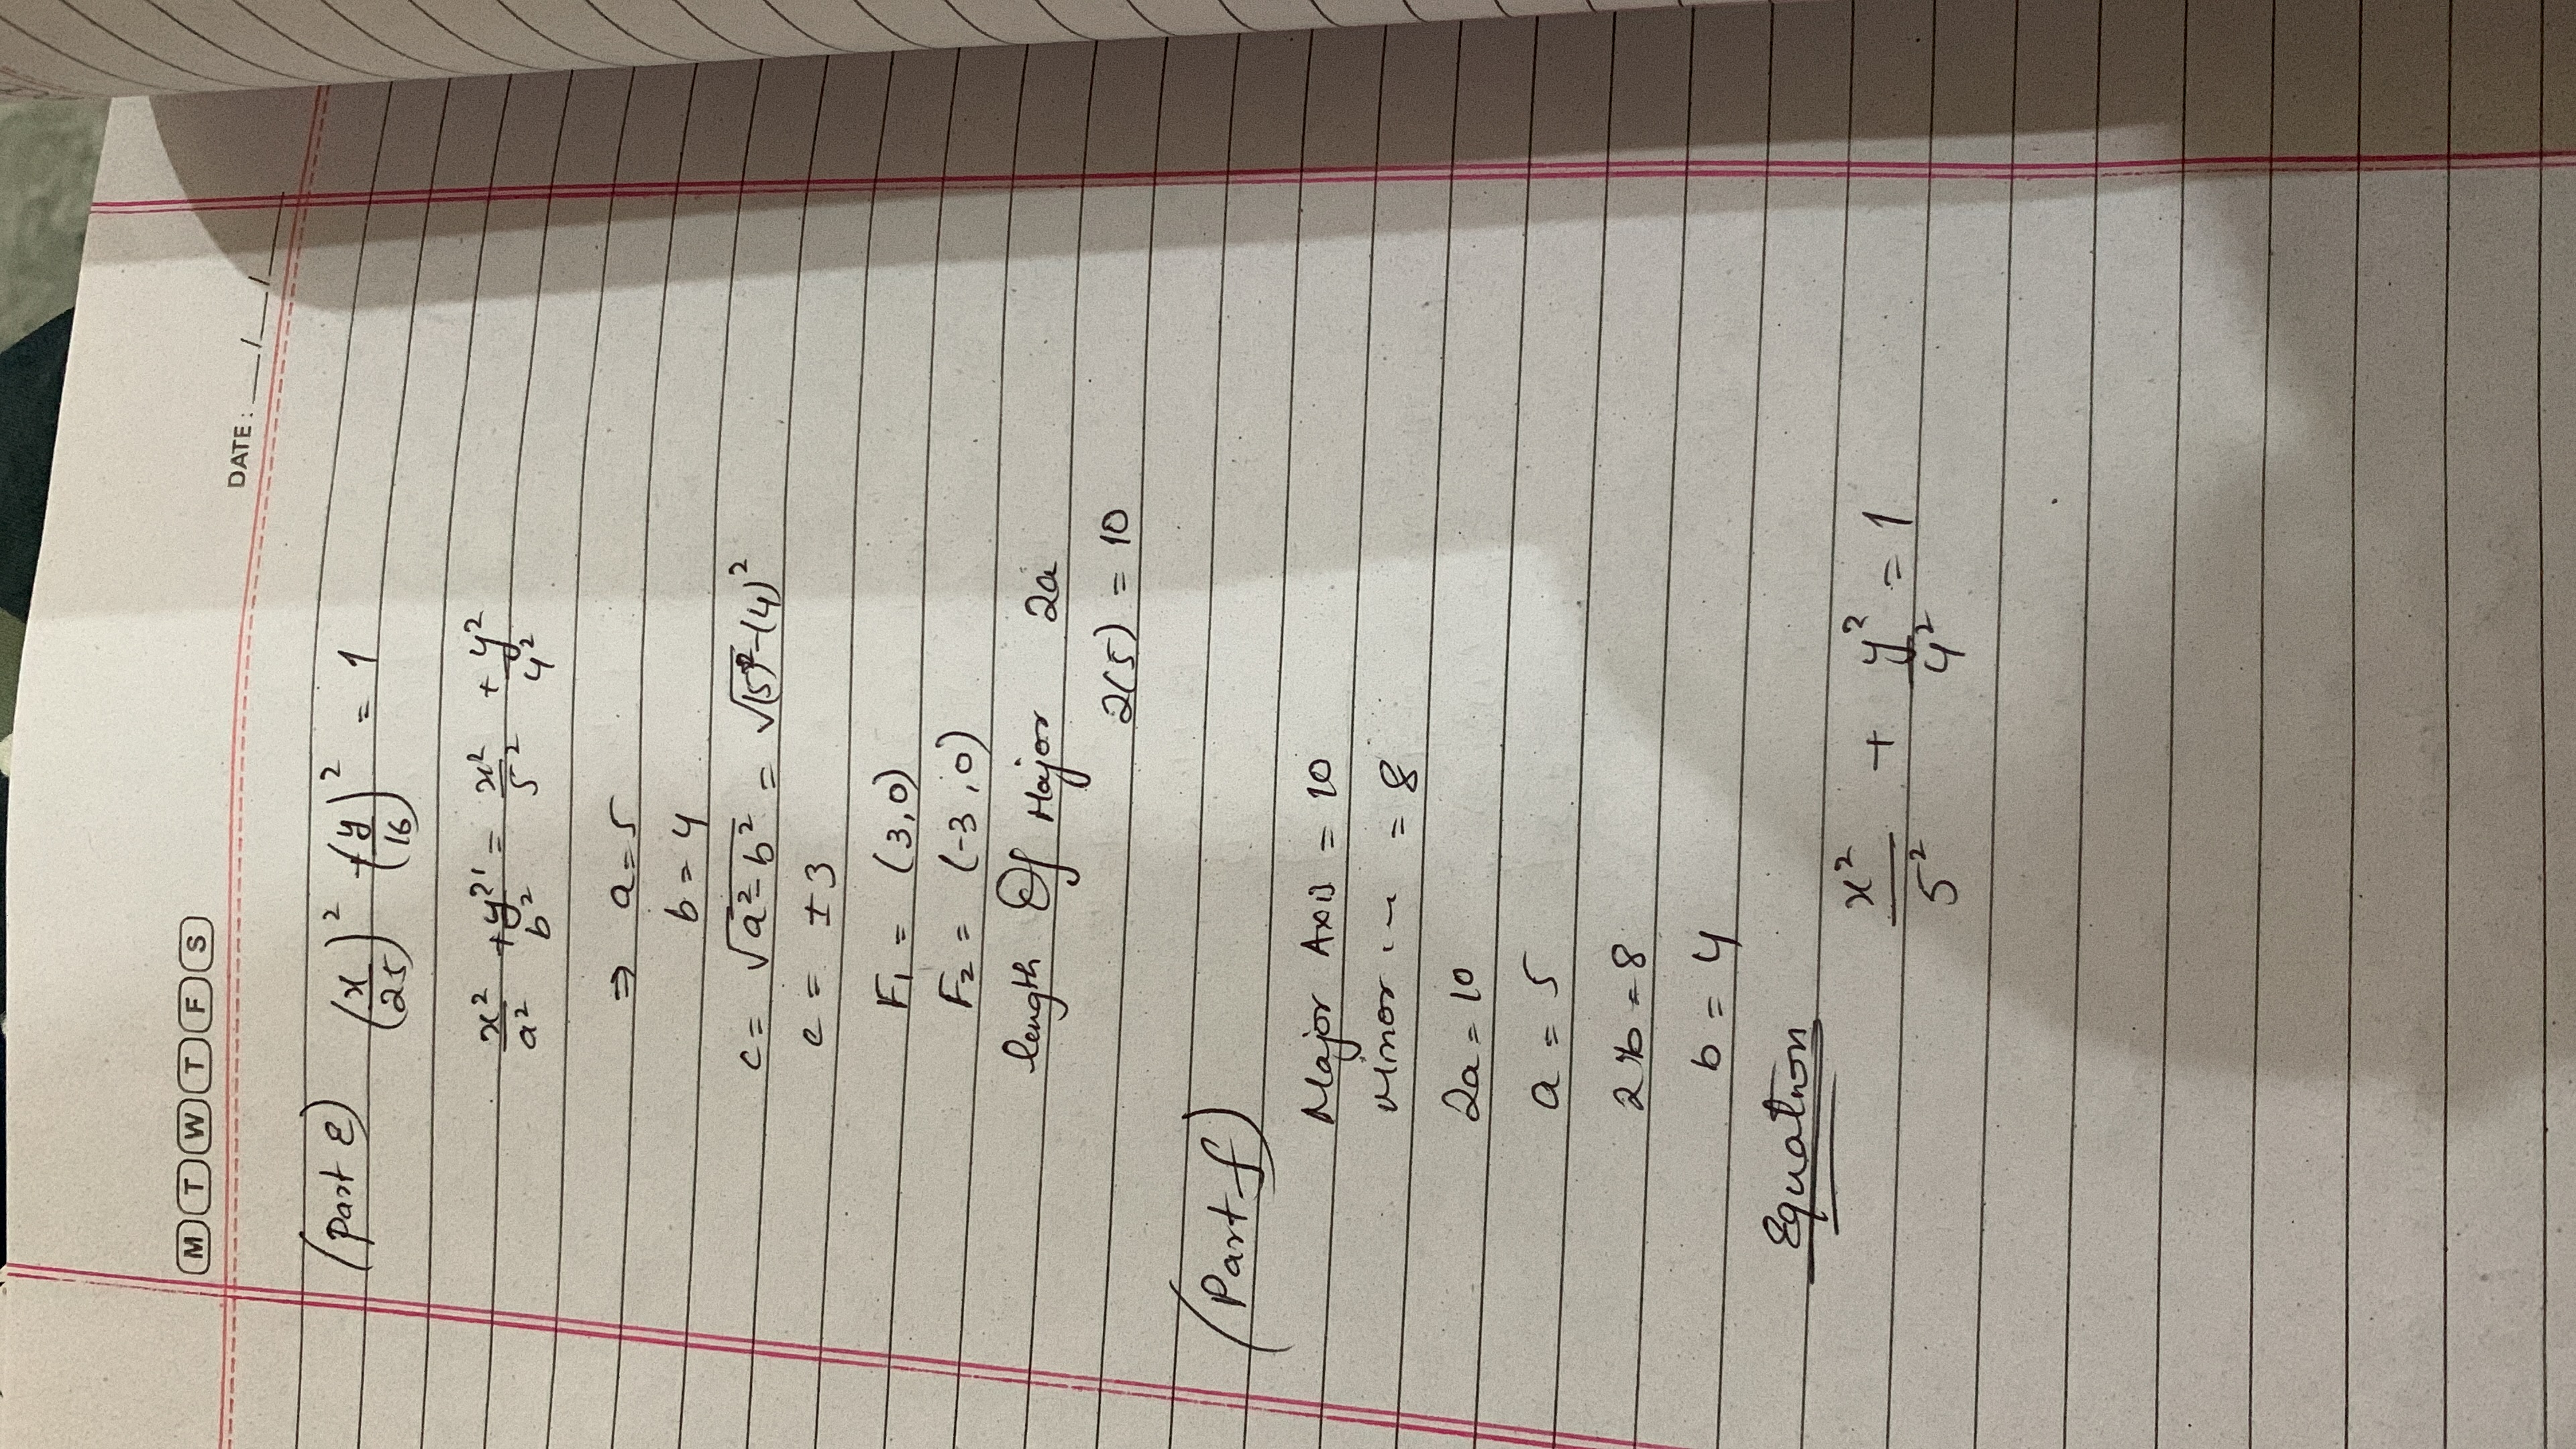 M T W T F S
DATE : __/__/__
(Part E) (x/25)² + (y/16)² = 1
x²/a² + y²/b² = x²/5² + y²/4²
⇒ a = 5
b = 4
c = √a² - b² = √(5)² - (4)²
c = ± 3
F₁ = (3,0)
F₂ = (-3,0)
length Of Major 2a
2(5) = 10
(Part f)
Major Axis = 10
Minor = 8
2a = 10
a = 5
2b = 8
b = 4
Equation
x²/5² + y²/4² = 1